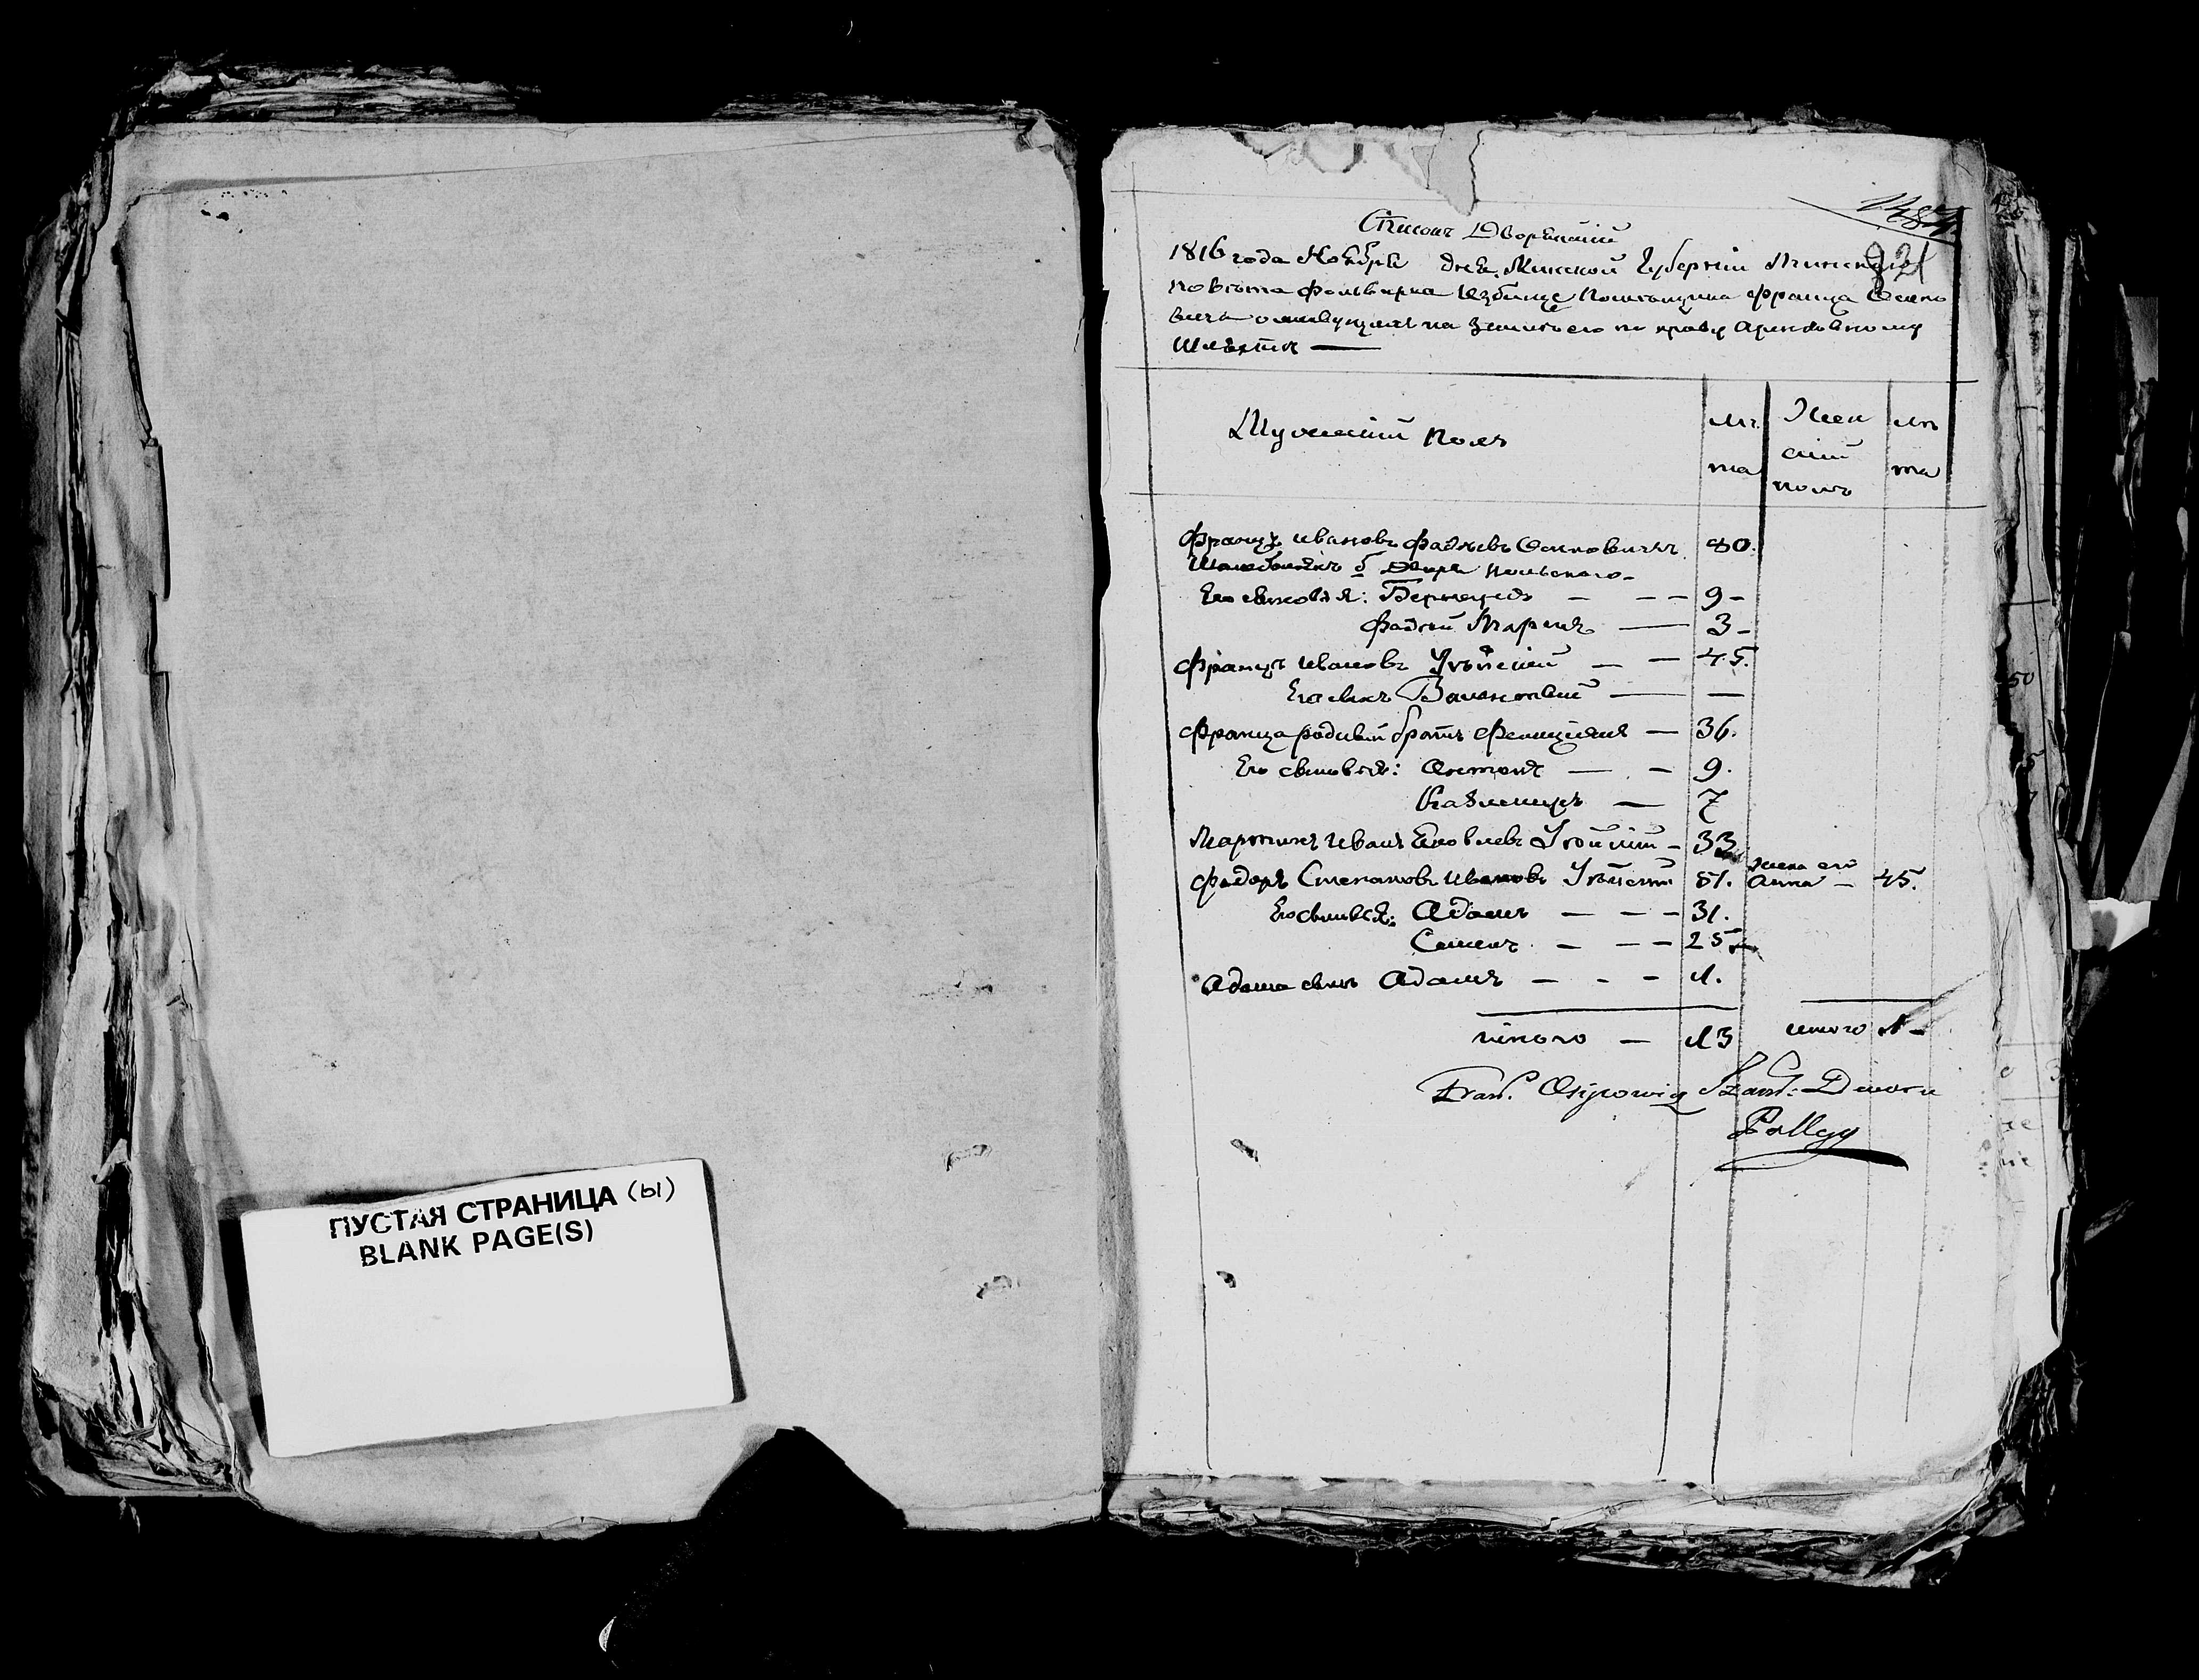 ПУСТАЯ СТРАНИЦА (ы)
BLANK PAGE(S)
Списокъ Дворянскій
1816 года Ноября дня Минской Губерніи Минскаго
повѣта фольварка Избище Помѣщика Франца Осипо
вича о живущихъ на Землѣ его по праву Арендовному
Шляхтѣ —
Мужескій Полъ
лѣ
та
Жен
скій
полъ
лѣ
та
Францъ Ивановъ Фадѣевъ Осиповичъ 40.
Шамбелянъ б. Двора Польскаго
Его сыновья: Бернардъ — — — 9 -
Фадей Марцинъ — 3 -
Францъ Ивановъ — — 45.
Его сынъ Валентий — —
Франца родный братъ Фелиціянъ — 36.
Его сыновья: Антонъ — — 9.
Казимиръ — 7
Мартинъ Иванъ Яковлевъ — 33
Федоръ Степановъ Ивановъ 51. жена его Анна — 45.
Его сыновья: Адамъ — — — 31.
Семенъ — — — 25
Адама сынъ Адамъ — — — 1.
итого — 13 итого 1 -
Fran. Osipowicz Szamb: Dworu
Polgo